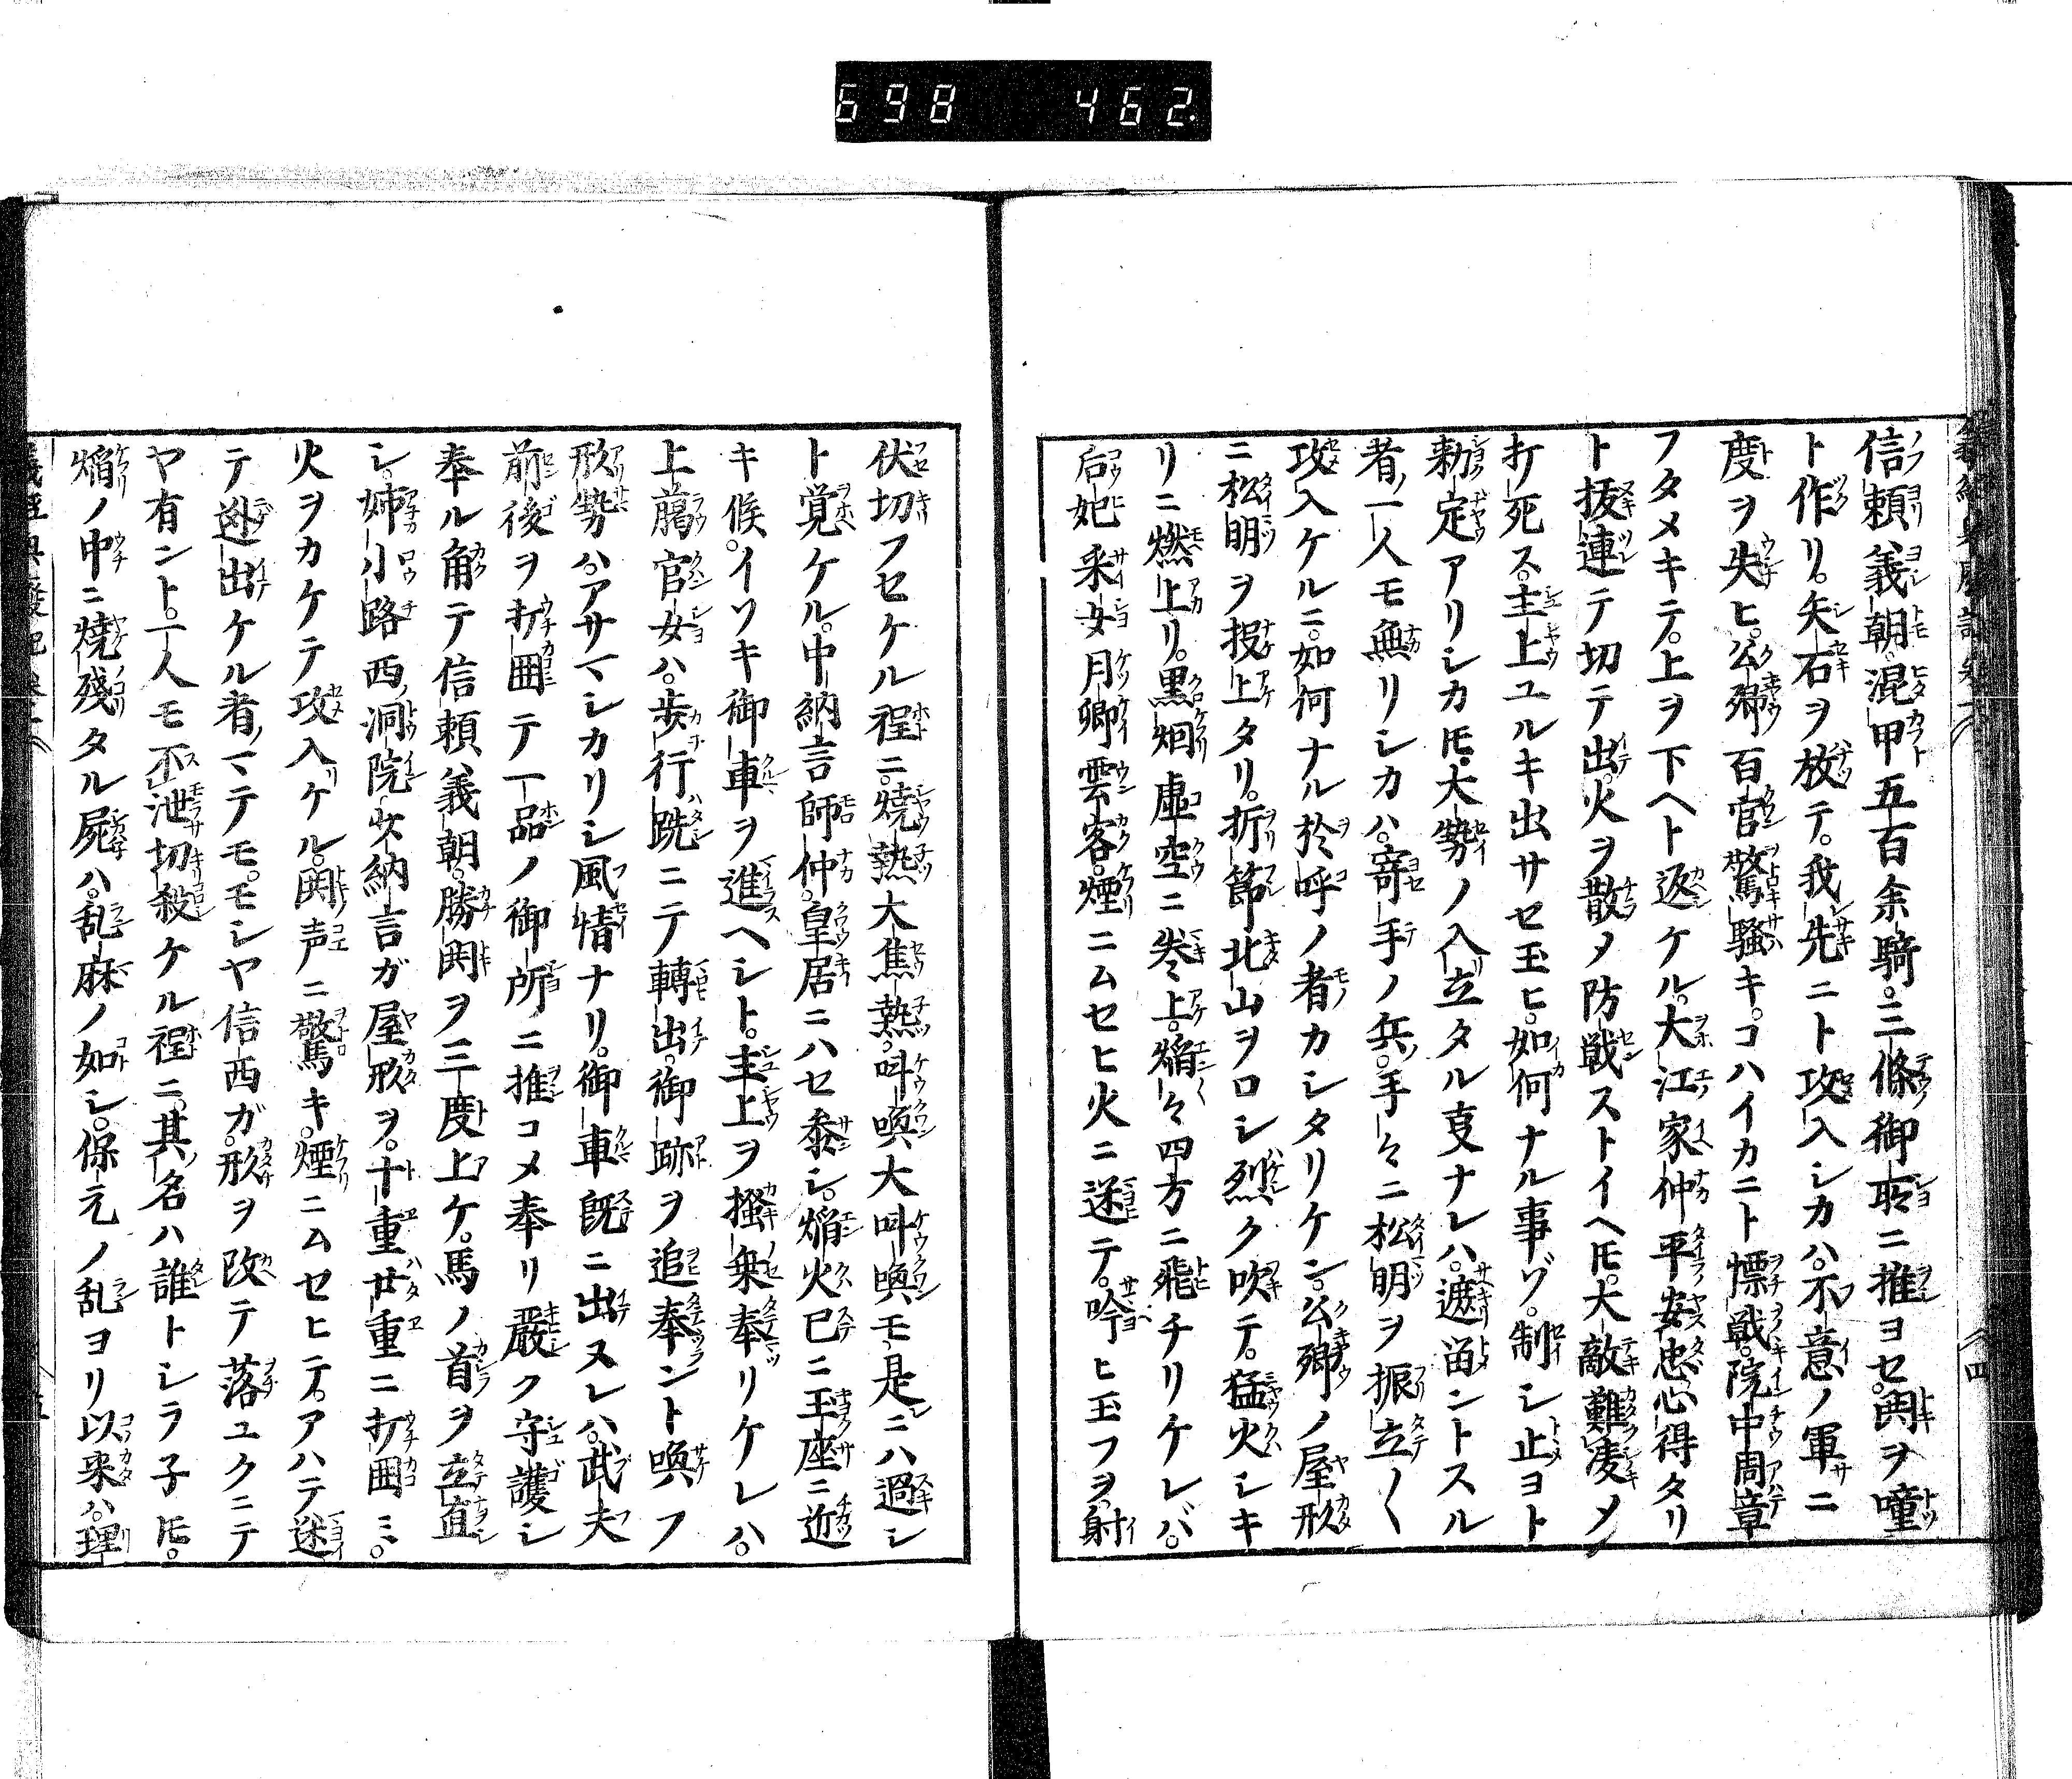 698 462
信頼義朝。混甲五百余騎。三條御所ニ推ヨセ。鬨ヲ噇
ト作リ。矢石ヲ放テ。我先ニト攻入シカハ。不意ノ軍ニ
度ヲ失ヒ。公卿百官驚騒キ。コハイカニト慓戰。院中周章
フタメキテ。上ヲ下ヘト返ケル。大江家仲平安忠心得タリ
ト抜連テ切テ出。火ヲ散メ防戦ストイヘ𪜈。大敵難凌メ
打死ス。主上ユルキ出サセ玉ヒ。如何ナル事ゾ。制シ止ヨト
勅定アリシカ𪜈。大勢ノ入立タル支ナレハ。遮畄ントスル
者一人モ無リシカハ。寄手ノ兵。手々ニ松明ヲ振立〱
攻入ケルニ。如何ナル於呼ノ者カシタリケン。公卿ノ屋形
ニ松明ヲ投上タリ。折節北山ヲロシ烈ク吹テ。猛火シキ
リニ燃上リ。黒烟虚空ニ巻上。焔々四方ニ飛チリケレバ。
后妃采女月卿雲客。煙ニムセヒ火ニ迷テ。吟ヒ玉フヲ射
伏切フセケル程ニ。焼熱大焦熱。叫喚大叫喚モ。是ニハ過シ
ト覚ケル。中納言師仲。皇居ニハセ参シ。焔火已ニ玉座ニ近
キ候。イソキ御車ヲ進ヘシト。主上ヲ搔乗奉リケレハ。
上﨟官女ハ。歩行跣ニテ轉出。御跡ヲ追奉ント喚フ
形勢ハ。アサマシカリシ風情ナリ。御車既ニ出ヌレハ。武夫
前後ヲ打囲テ一品ノ御所ニ推コメ奉リ嚴ク守護シ
奉ル角テ信頼義朝。勝鬨ヲ三度上ケ。馬ノ首ヲ立直
シ。姉小路西洞院少納言ガ屋形ヲ。十重廿重ニ打囲ミ。
火ヲカケテ攻入ケル。鬨声ニ驚キ。煙ニムセヒテ。アハテ迷
テ迯出ケル者マテモ。モシヤ信西ガ。形ヲ改テ落ユクニテ
ヤ有ント。一人モ不泄切殺ケル程ニ。其名ハ誰トシラ子𪜈。
焔ノ中ニ焼残タル屍ハ。乱麻ノ如シ。保元ノ乱ヨリ以来ハ。理